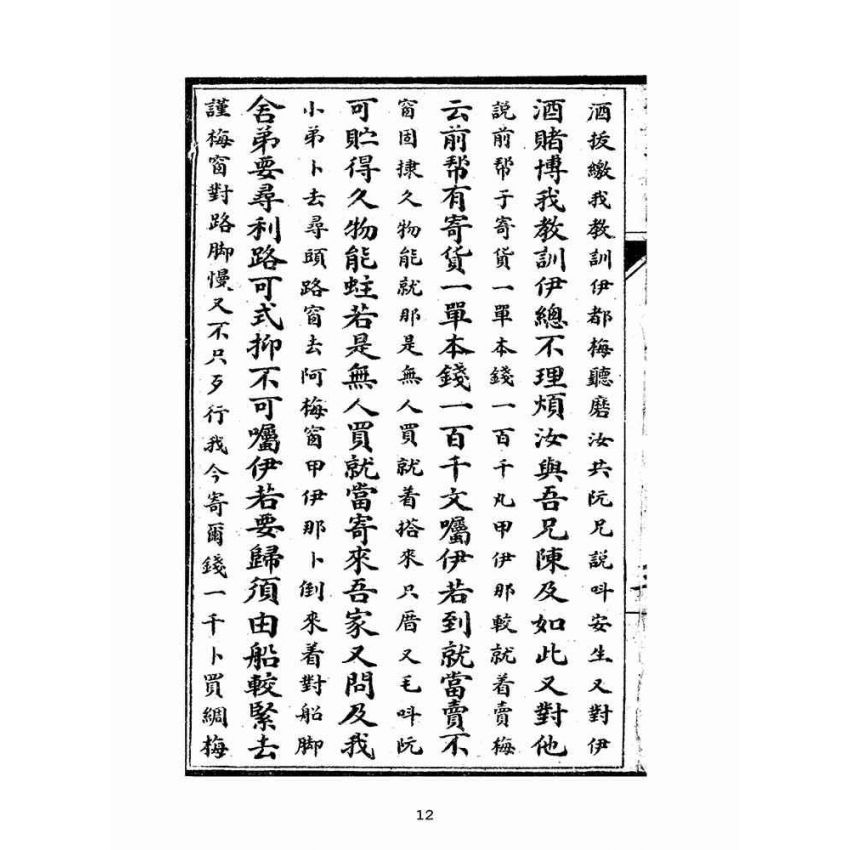 酒扳繳我教訓伊都梅聽磨汝共阮兄說呌安生又對伊
酒賭博我教訓伊總不理煩汝與吾兄陳及如此又對他
說前帮于寄貨一單本錢一百千丸甲伊那較就着賣梅
云前帮有寄貨一單本錢一百千文囑伊若到就當賣不
窗固㨿久物能就那是無人買就着搭來只厝又毛呌阮
可貯得久物能蛀若是無人買就當寄來吾家又問及我
小弟卜去尋頭路窗去阿梅窗甲伊那卜倒來着對船脚
舍弟要尋利路可式抑不可囑伊若要歸須由船較緊去
謹梅窗對路脚慢又不只歹行我今寄爾錢一千卜買綢梅
12